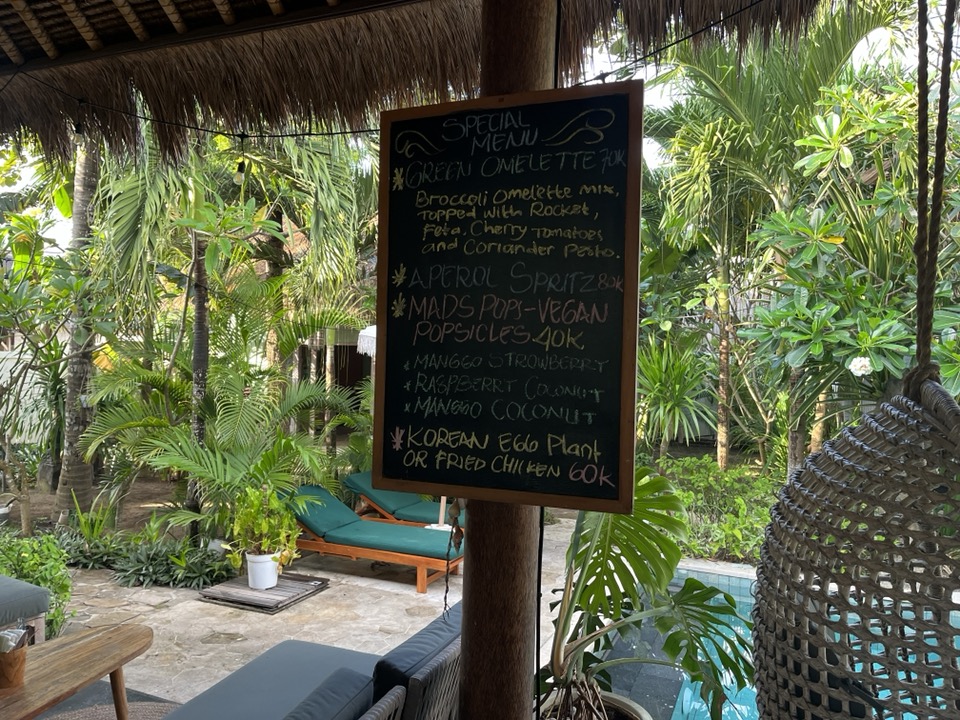 SPECIAL
MENU
GREEN OMELETTE 70K
Broccoli Omelette mix,
Topped with Rocket,
Feta, Cherry Tomatoes
and Coriander Pesto.
APEROL SPRITZ 80K
MADS POPS-VEGAN
POPSICLES 40K
MANGGO STROWBERRY
RASPBERRY COCONUT
MANGGO COCONUT
KOREAN EGG Plant
OR FRIED CHICKEN 60K